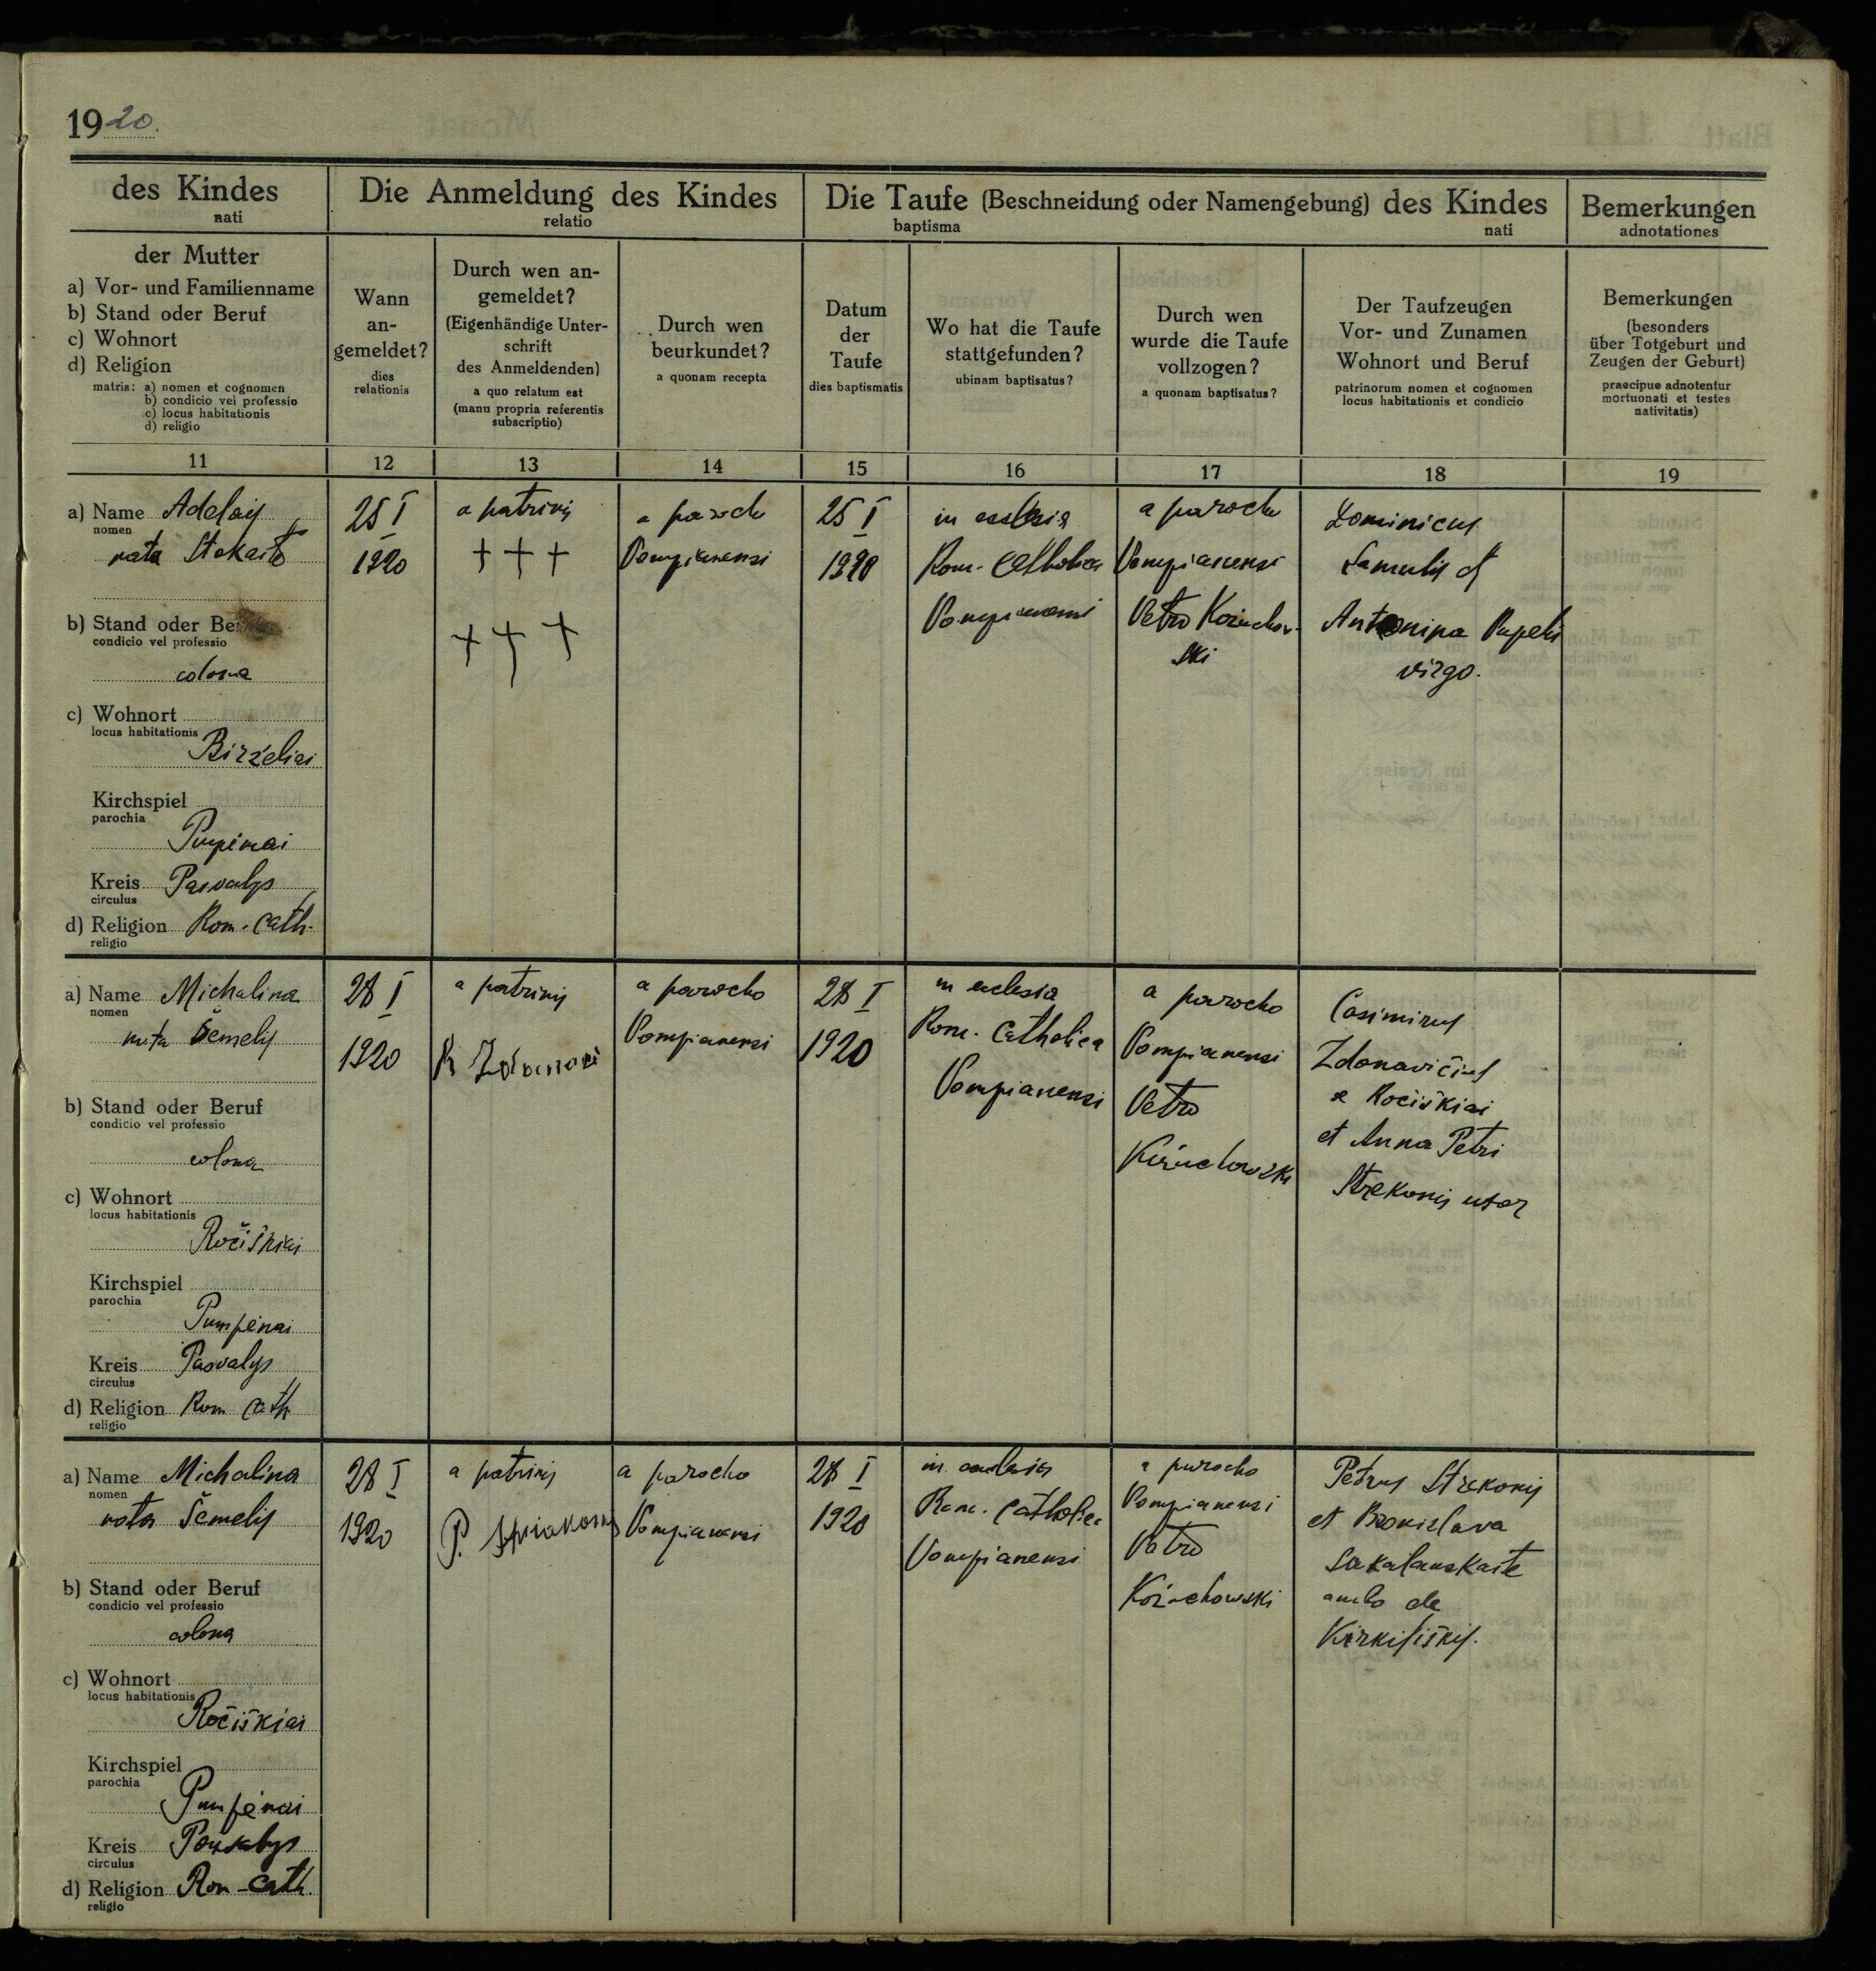 1920.
des Kindes
nati
Die Anmeldung des Kindes
relatio
Die Taufe (Beschneidung oder Namengebung) des Kindes
baptisma nati
Bemerkungen
adnotationes
der Mutter
a) Vor- und Familienname
b) Stand oder Beruf
c) Wohnort
d) Religion
matris: a) nomen et cognomen
b) condicio vel professio
c) locus habitationis
d) religio
Wann
an-
gemeldet?
dies
relationis
Durch wen an-
gemeldet?
(Eigenhändige Unter-
schrift
des Anmeldenden)
a quo relatum est
(manu propria referentis
subscriptio)
Durch wen
beurkundet?
a quonam recepta
Datum
der
Taufe
dies baptismatis
Wo hat die Taufe
stattgefunden?
ubinam baptisatus?
Durch wen
wurde die Taufe
vollzogen?
a quonam baptisatus?
Der Taufzeugen
Vor- und Zunamen
Wohnort und Beruf
patrinorum nomen et cognomen
locus habitationis et condicio
Bemerkungen
(besonders
über Totgeburt und
Zeugen der Geburt)
praecipue adnotentur
mortuonati et testes
nativitatis)
11 12 13 14 15 16 17 18 19
a) Name Adelais
nomen
nata Stokaitė
b) Stand oder Be
condicio vel professio
colona
c) Wohnort
locus habitationis
Birželiai
Kirchspiel
parochia
Pumpėnai
Kreis Pasvalys
circulus
d) Religion Rom. Cath.
religio
25 I
1920
a patrinis
+ + +
+ + +
a parocho
Pompianensi
25 I
1920
in ecclesia
Rom. Catholica
Pompianensi
a parocho
Pompianensi
Petro Koziuchow-
ski
Dominicus
Lamulis et
Antonina Pupelis
virgo.
a) Name Michalina
nomen
nata Šemelis
b) Stand oder Beruf
condicio vel professio
colona
c) Wohnort
locus habitationis
Ročiškiai
Kirchspiel
parochia
Pumpėnai
Kreis Pasvalys
circulus
d) Religion Rom Cath
religio
28 I
1920
a patrinis
K
a parocho
Pompianensi
28 I
1920
in eclesia
Rom. Catholica
Pompianensi
a parocho
Pompianensi
Petro
Koziuchowski
Casimirus
Zdonavičius
e Ročiškiai
et Anna Petri
Strekonis uxor
a) Name Michalina
nomen
nata Šemelis
b) Stand oder Beruf
condicio vel professio
colona
c) Wohnort
locus habitationis
Ročiškiai
Kirchspiel
parochia
Pumpėnai
Kreis Pasvalys
circulus
d) Religion Rom-Cath.
religio
28 I
1920
a patrinis
P.
a parocho
Pompianensi
28 I
1920
in ecclesia
Rom. Catholica
Pompianensi
a parocho
Pompianensi
Petro
Koziuchowski
Petrus Strekonis
et Bronislava
Sakalauskaitė
ambo de
Kirkiliškis.